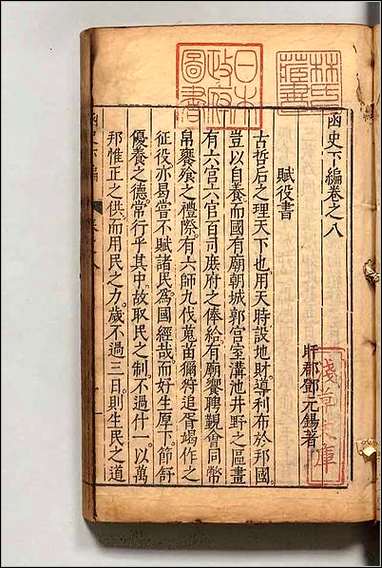 函史下編卷之八
盱郡鄧元錫著
賦役書
古哲后之理天下也用天時設地財導利布於邦國
豈以自養而國有廟朝城郭宮室溝池井野之區畫
有六官六官百司庶府之俸給有廟饗聘覲會同幣
帛饔飧之禮際有六師九伐蒐苗獮狩追胥竭作之
征役亦曷嘗不賦諸民為國經哉而好生厚下節舒
優養之德常行乎其中故取民之制不過什一以萬
邦惟正之供而用民之力歲不過三日則生民之道
日本
政府
圖書
林氏
藏書
淺草文庫
函史下編